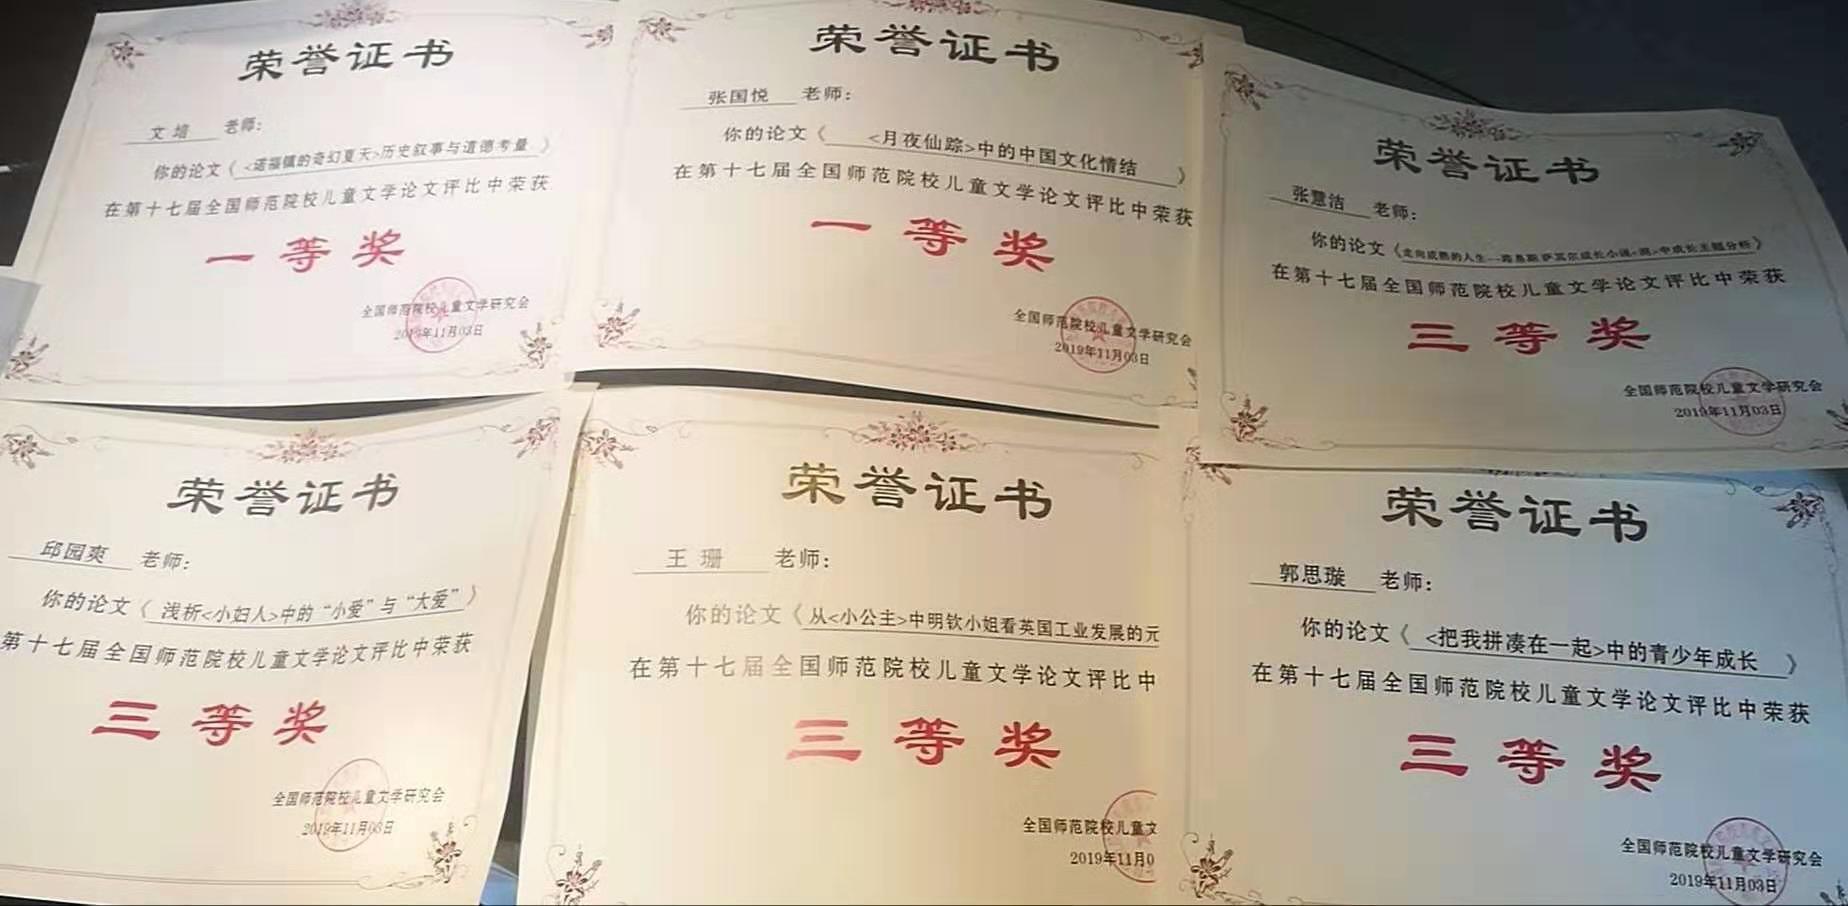 荣誉证书
文 培 老师：
你的论文《 <诺福镇的奇幻夏天>历史叙事与道德考量 》
在第十七届全国师范院校儿童文学论文评比中荣获
一等奖
全国师范院校儿童文学研究会
2019年11月03日
荣誉证书
张国悦 老师：
你的论文《 <月夜仙踪>中的中国文化情结 》
在第十七届全国师范院校儿童文学论文评比中荣获
一等奖
全国师范院校儿童文学研究会
2019年11月03日
荣誉证书
张慧洁 老师：
你的论文《走向成熟的人生--路易斯萨其尔成长小说<洞>中成长主题分析》
在第十七届全国师范院校儿童文学论文评比中荣获
三等奖
全国师范院校儿童文学研究会
2019年11月03日
荣誉证书
邱园爽 老师：
你的论文《 浅析<小妇人>中的“小爱”与“大爱”》
第十七届全国师范院校儿童文学论文评比中荣获
三等奖
全国师范院校儿童文学研究会
2019年11月03日
荣誉证书
王 珊 老师：
你的论文《从<小公主>中明钦小姐看英国工业发展的元
在第十七届全国师范院校儿童文学论文评比中
三等奖
全国师范院校儿童文
2019年11月0
荣誉证书
郭思璇 老师：
你的论文《 <把我拼凑在一起>中的青少年成长 》
在第十七届全国师范院校儿童文学论文评比中荣获
三等奖
全国师范院校儿童文学研究会
2019年11月03日